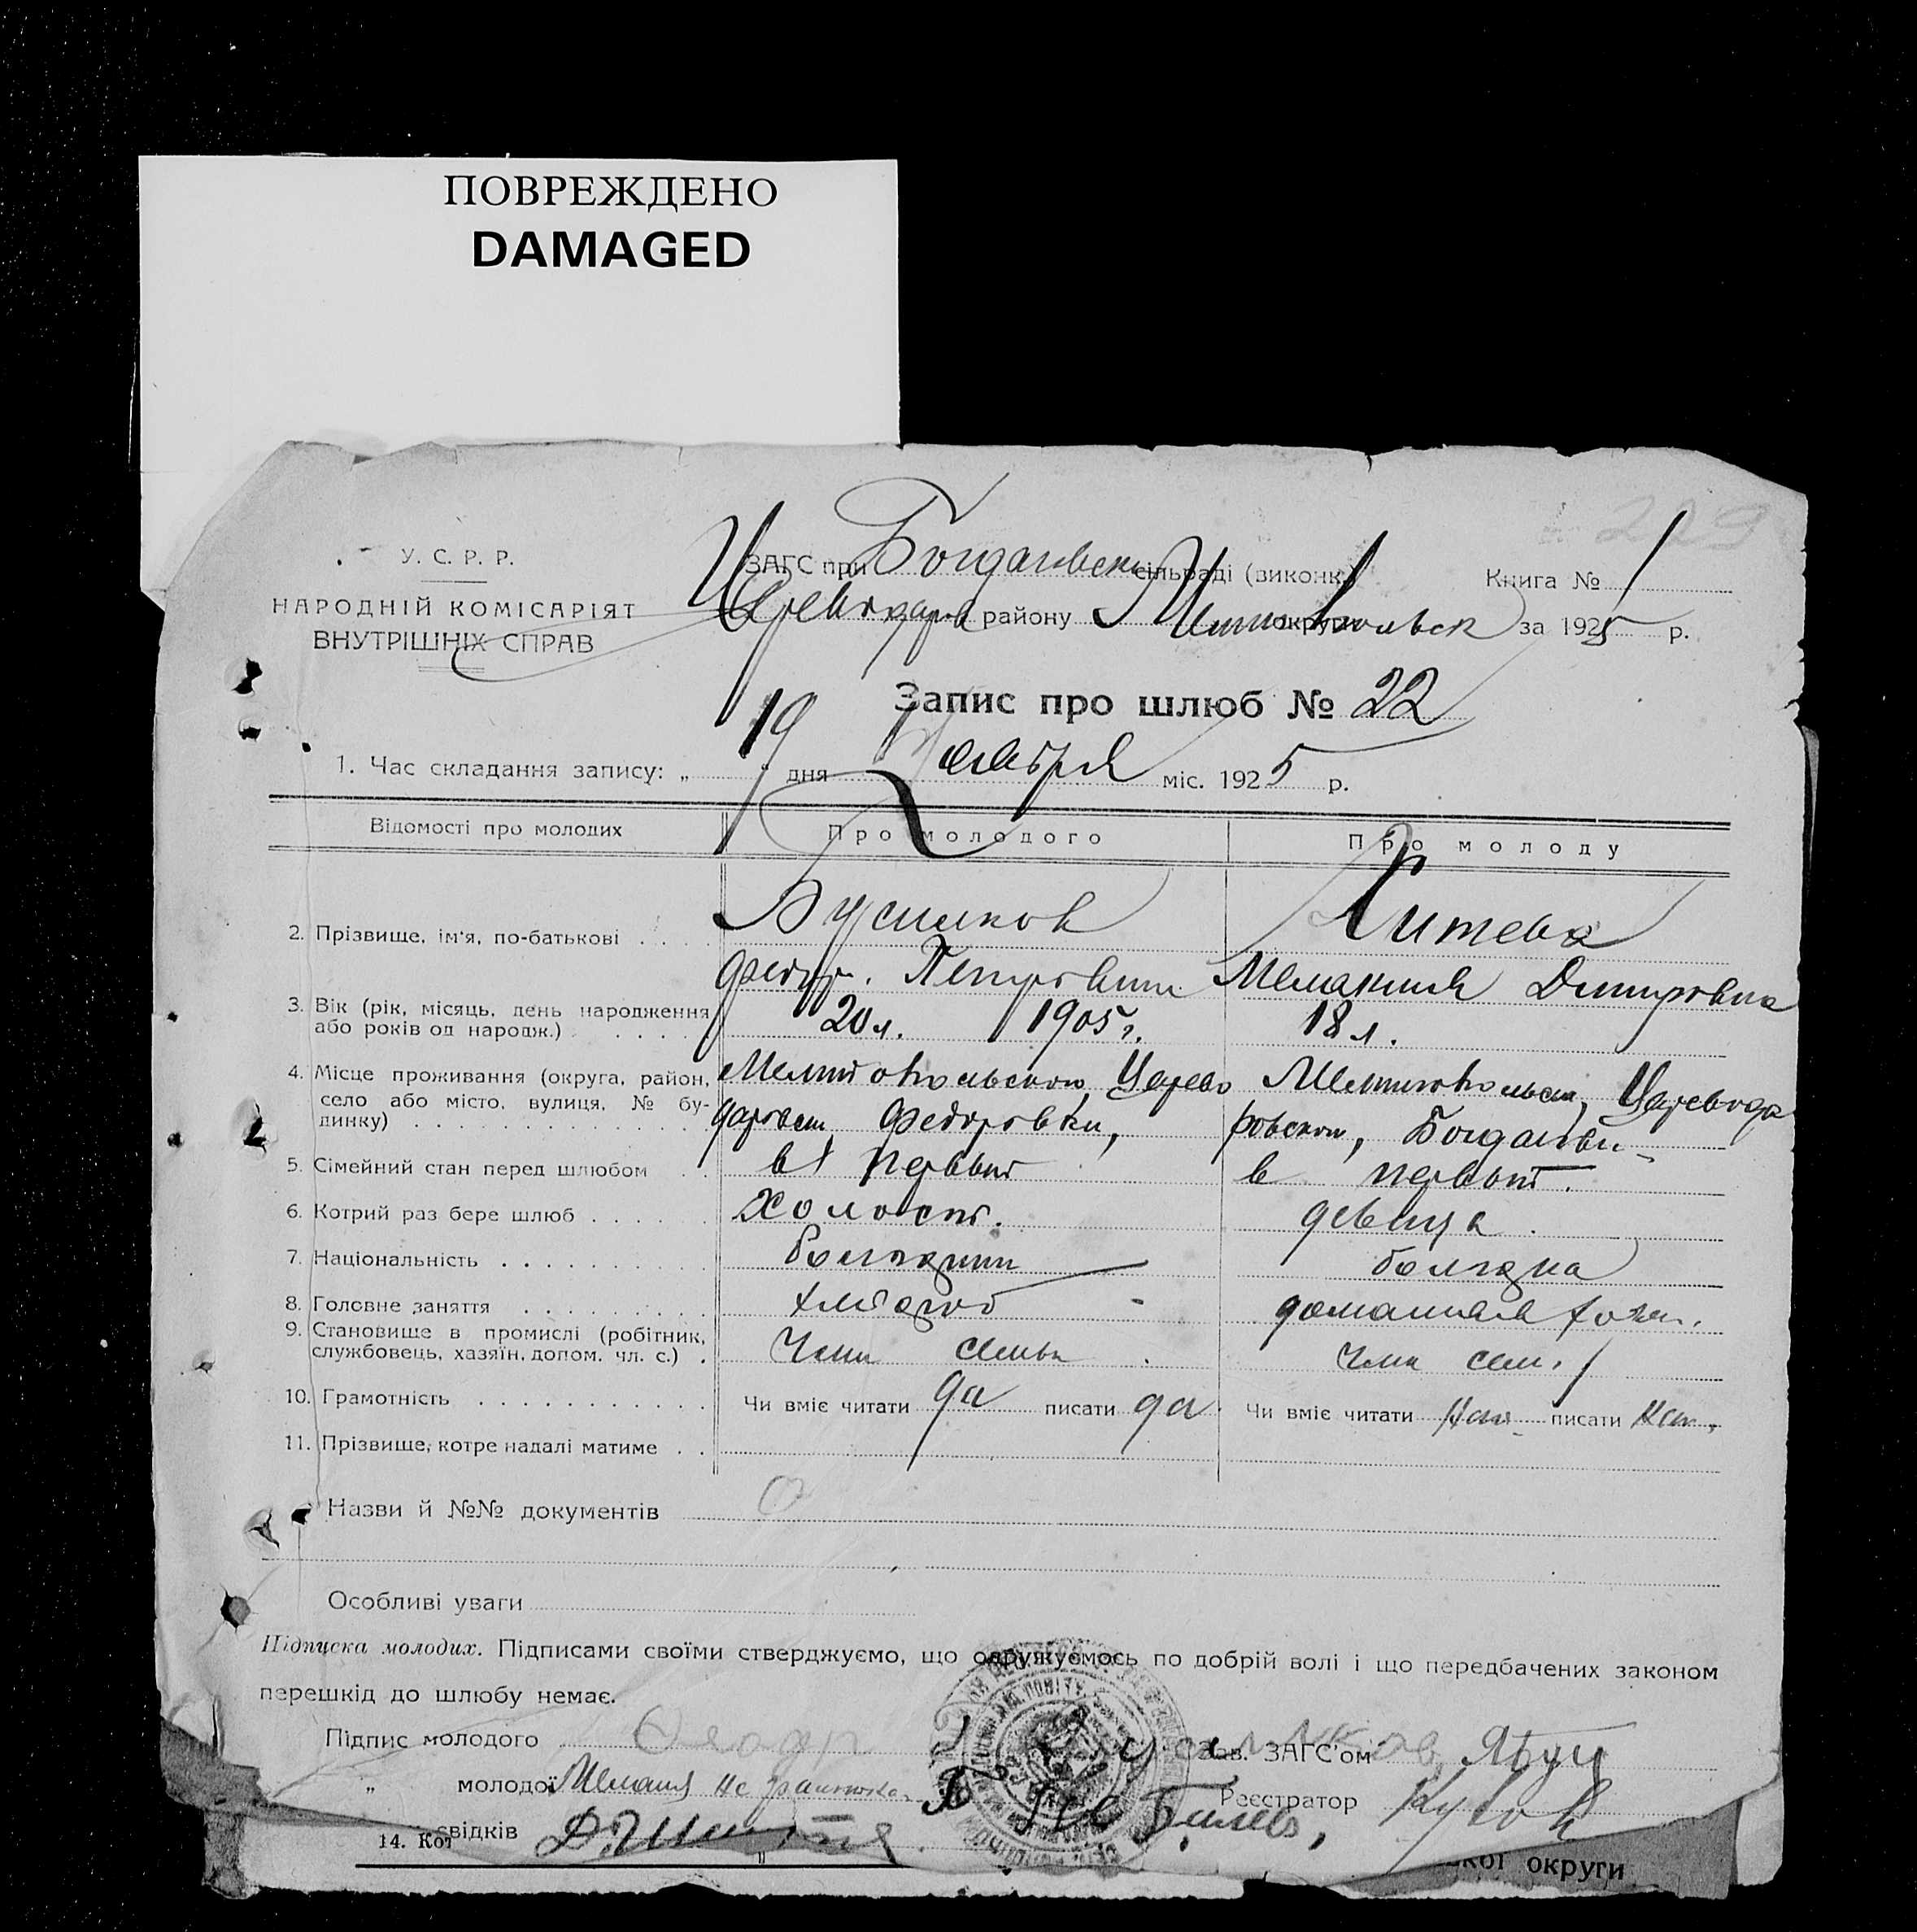 ПОВРЕЖДЕНО
DAMAGED
У. С. Р. Р.
НАРОДНІЙ КОМІСАРІЯТ
ВНУТРІШНІХ СПРАВ
ЗАГС при Богдановск сільраді (виконк.) Книга № 1
району округи за 1925 р.
Запис про шлюб № 22
1. Час складання запису: „19“ дня міс. 1925 р.
Відомості про молодих
Про молодого
Про молоду
2. Прізвище, ім'я, по-батькові
Федор. Петрович
Дмитровна
3. Вік (рік, місяць, день народження
або років од народж.)
20 л. 1905 г.
18 л.
4. Місце проживання (округа, район,
село або місто, вулиця, № бу-
динку)
Мелитопольском, Царево
даровск, Федоровки,
Мелитопольск, Царевода
ровском, Богдановк
5. Сімейний стан перед шлюбом
в первый
в первый.
6. Котрий раз бере шлюб
холост.
девица.
7. Національність
болгарин
болгарка
8. Головне заняття
хлебороб
домашняя хозя.
9. Становище в промислі (робітник,
службовець, хазяїн, допом. чл. с.)
Член семьи
Член сем.
10. Грамотність
Чи вміє читати да писати да
Чи вміє читати нет писати нет.
11. Прізвище, котре надалі матиме
Назви й №№ документів
Особливі уваги
Підписка молодих. Підписами своїми стверджуємо, що одружуємось по добрій волі і що передбачених законом
перешкід до шлюбу немає.
Підпис молодого
Зав. ЗАГС'ом
„ молодої
Реєстратор
свідків
14. Кот
округи